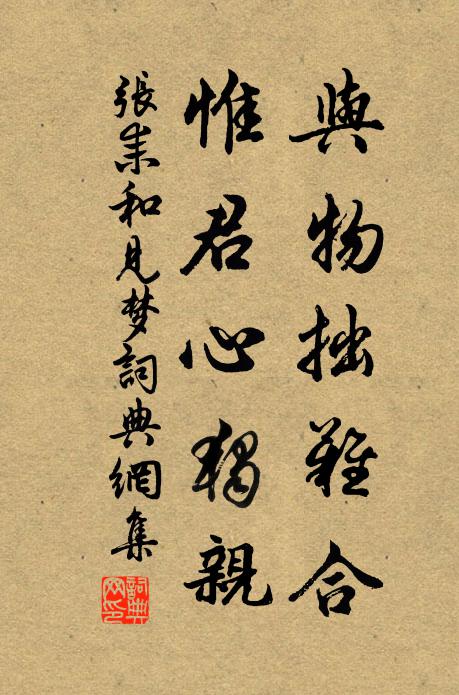 與物拙難合
惟君心獨親
張耒和見夢詞典網集
詞典網印